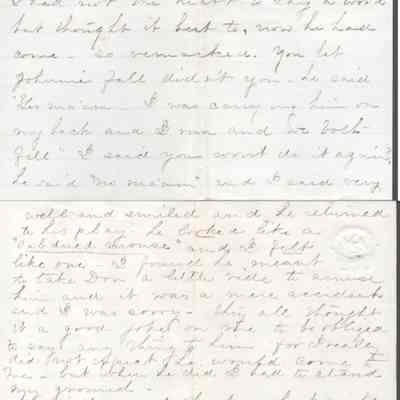 I had not the heart to say a word
but thought it best to, now he had
come - so remarked. You let
Johnnie fall did'nt you - he said
"Yes ma'am - I was carrying him on
my back and I run and we both
fell" I said you wont do it again?
he said "no ma'am" and I said very
well and smiled and he returned
to his play he looked like a
"subdued mouse" and I felt
like one - I found he meant
to take Don a little ride to amuse
him and it was a mere accident
and I was sorry - They all thought
it a good joke on me to be obliged
to say any thing to him for I really
did not expect he would come to
me - but when he did I had to stand
my ground -